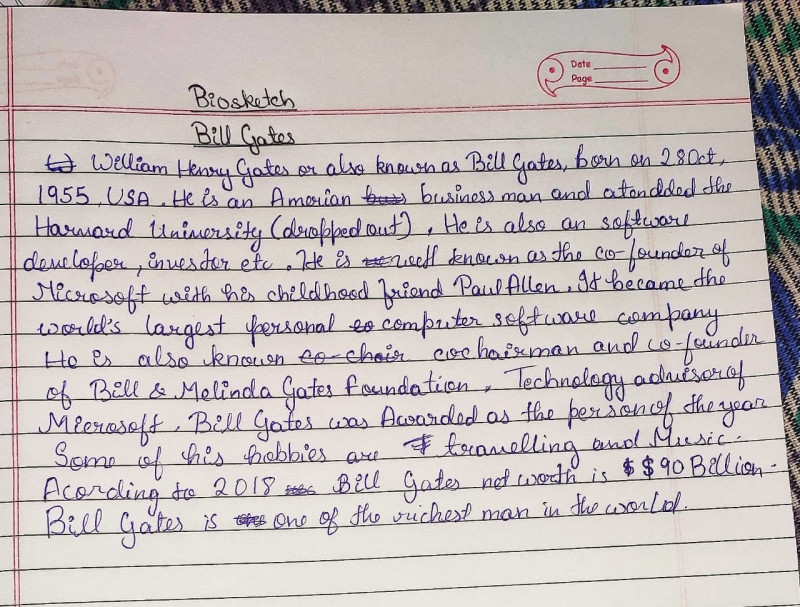 Date
Page
Biosketch
Bill Gates
William Henry Gates or also known as Bill Gates, born on 28 Oct,
1955, USA. He is an Amerian business man and atendded the
Harvard University (dropped out). He is also an software
developer, investor etc. He is well known as the co-founder of
Microsoft with his childhood friend Paul Allen. It became the
world's largest personal co computer software company
He is also known co-chair cochairman and co-founder
of Bill & Melinda Gates foundation, Technology advisor of
Microsoft, Bill Gates was Awarded as the person of the year
Some of his hobbies are travelling and Music.
Acording to 2018 Bill Gates net worth is $ $90 Billion.
Bill Gates is one of the richest man in the world.